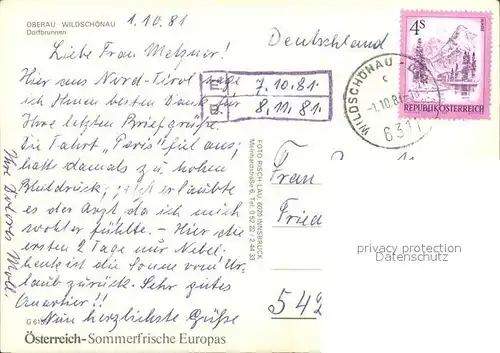 OBERAU WILDSCHÖNAU
Dorfbrunnen
1.10.81
Deutschland
Liebe Frau Metzner!
Hier aus Nord-Tirol sage
ich Ihnen besten Dank für
Ihre letzten Briefgrüße.
Die Fahrt "Paris" fiel aus;
hatte damals zu hohen
Blutdruck; jetzt erlaubte
es der Arzt da ich mich
wohler fühlte. - Hier die
ersten 2 Tage nur Nebel
heute ist die Sonne vom Ur-
laub zurück. Sehr gutes
Quartier!!
Nun herzlichste Grüße
Ihre
7.10.81.
8.11.81.
4S
REPUBLIK ÖSTERREICH
WILDSCHÖNAU -
c
-1.10.81
6311
FOTO RISCH-LAU, 6020 INNSBRUCK
Frau
Fried
542
privacy protection
Datenschutz
Österreich-Sommerfrische Europas